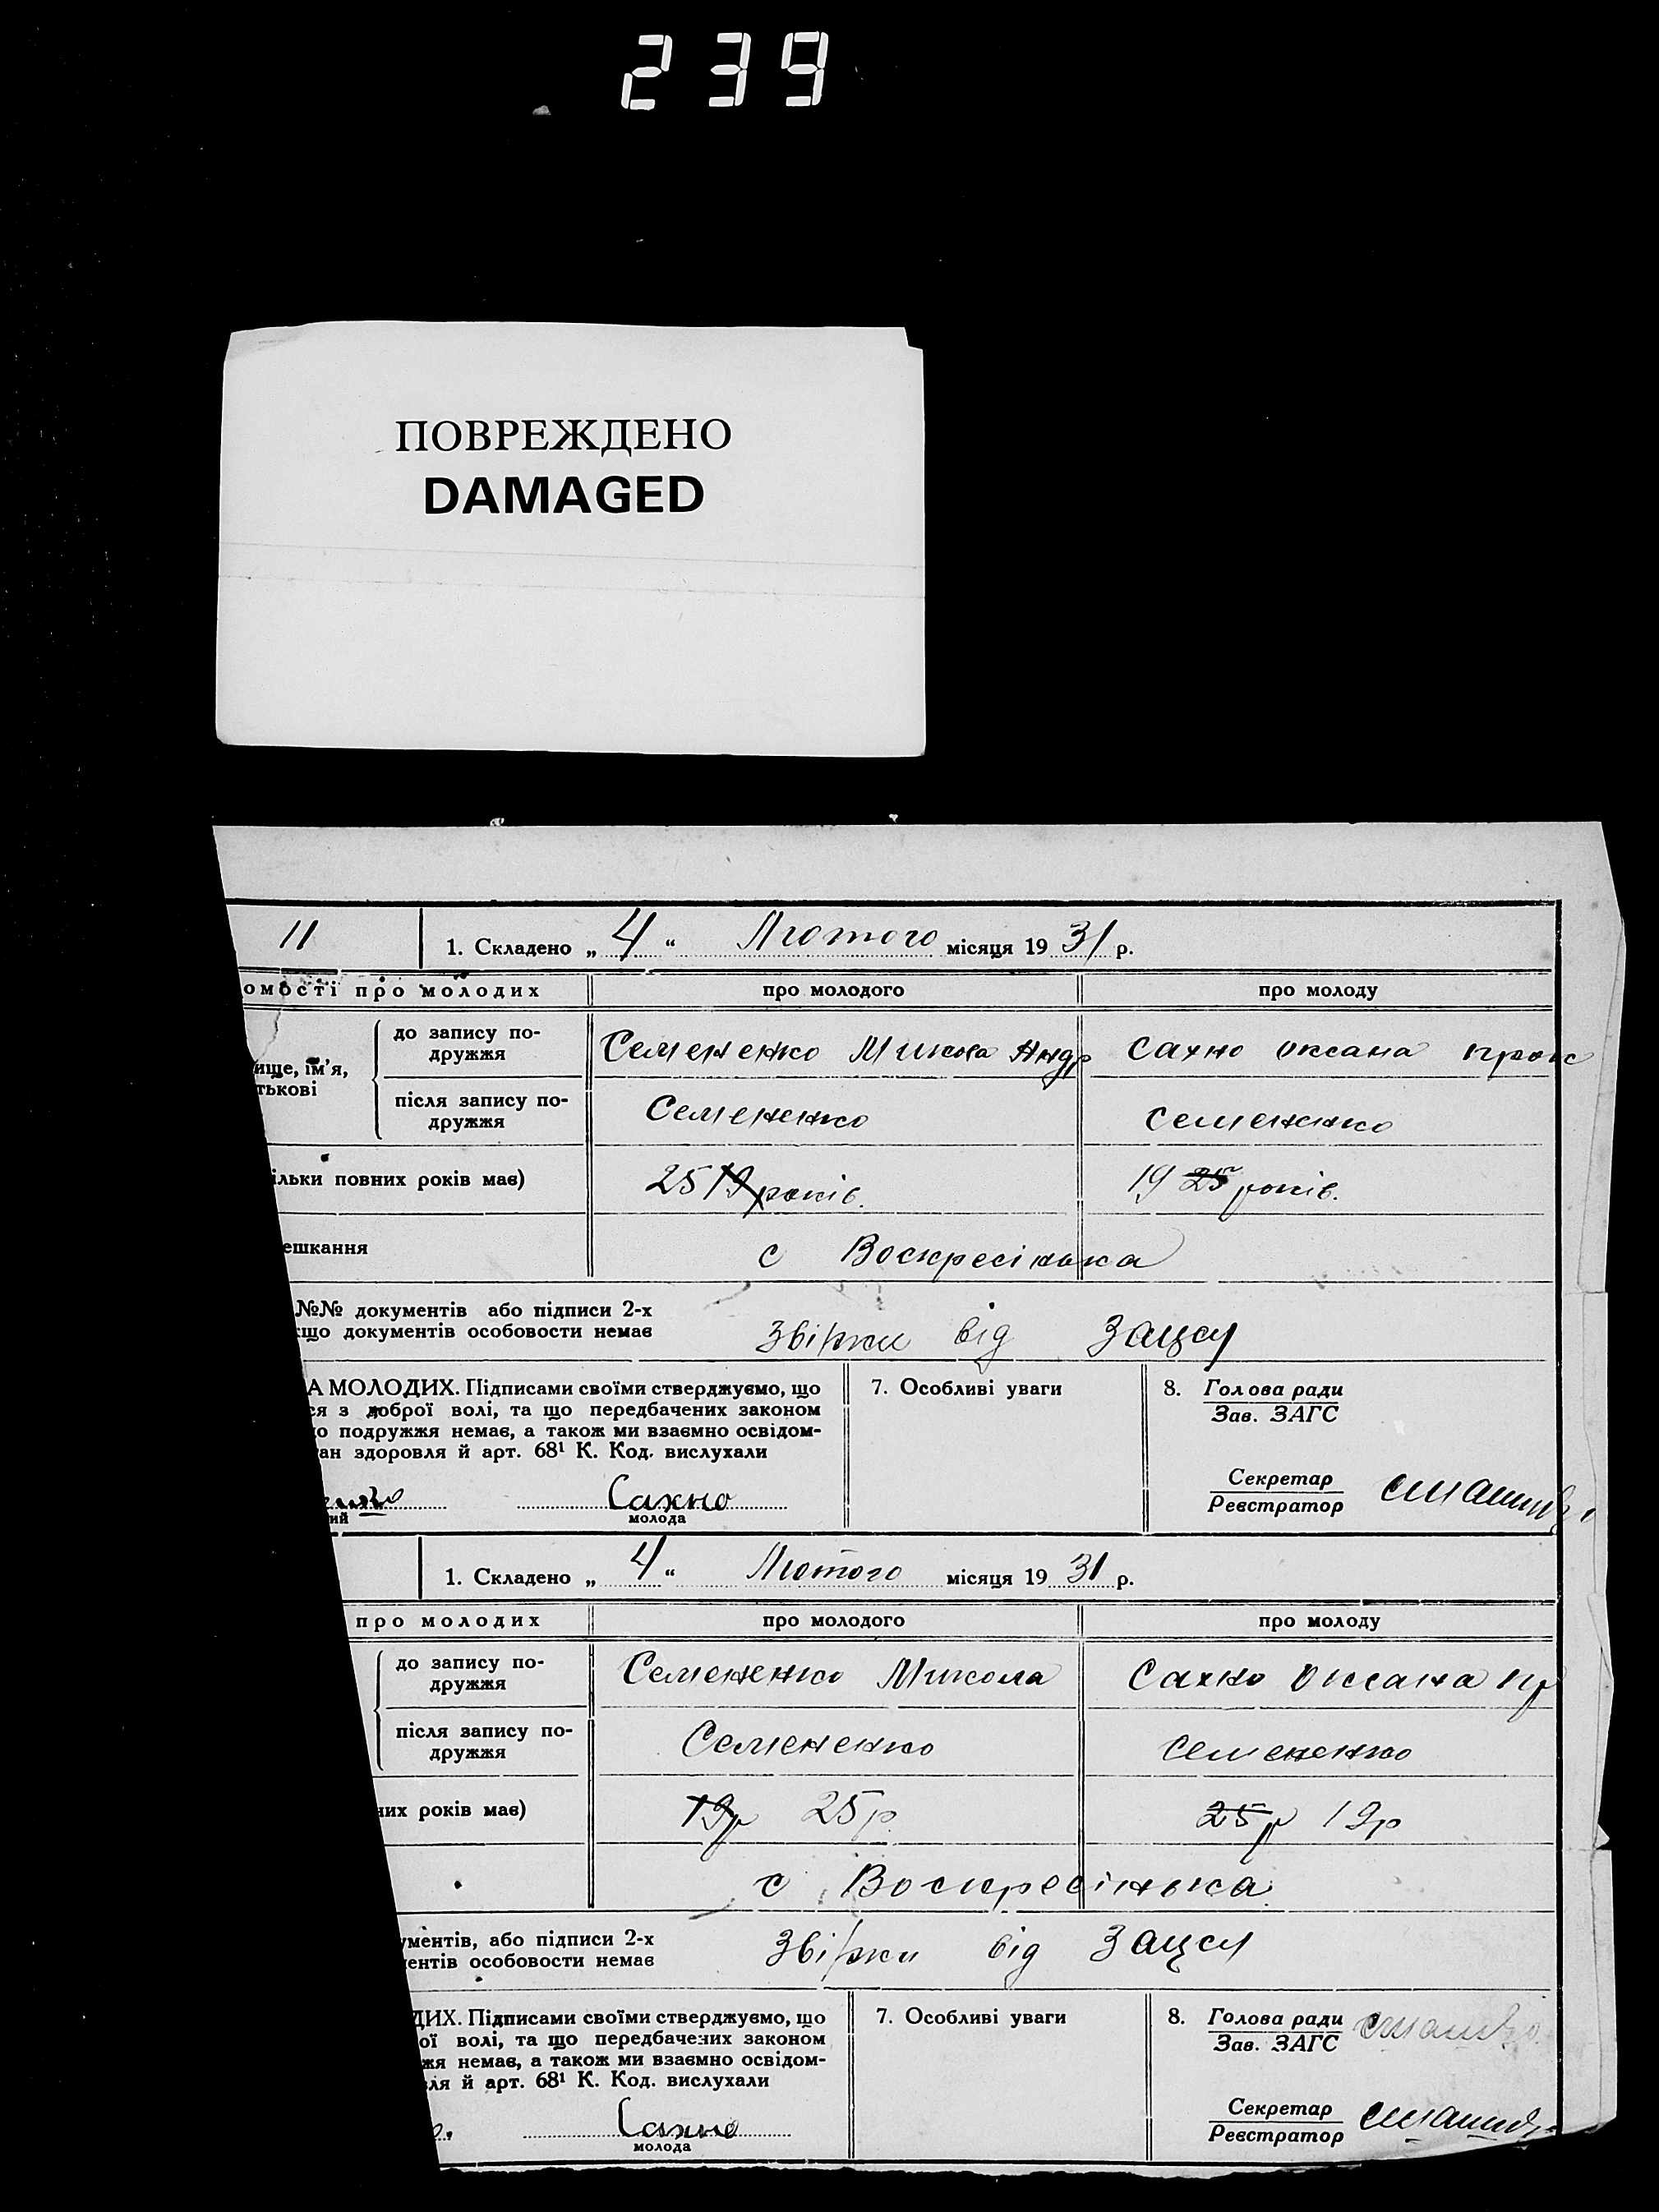 239
ПОВРЕЖДЕНО
DAMAGED
11
1. Складено „ 4 “ Лютого місяця 1931 р.
омості про молодих
про молодого
про молоду
ище, ім'я,
тькові
до запису по-
дружжя
Семененко Микола Андр
Сахно Оксана Прок
після запису по-
дружжя
Семененко
Семененко
ільки повних років має)
25 19 років.
19 25 років.
ешкання
с Воскресінька
№№ документів або підписи 2-х
що документів особовости немає
від Загсу
А МОЛОДИХ. Підписами своїми стверджуємо, що
ся з доброї волі, та що передбачених законом
о подружжя немає, а також ми взаємно освідом-
ан здоровля й арт. 68¹ К. Код. вислухали
ий
Сахно
молода
7. Особливі уваги
8. Голова ради
Зав. ЗАГС
Секретар
Реєстратор
1. Складено „ 4 “ Лютого місяця 1931 р.
про молодих
про молодого
про молоду
до запису по-
дружжя
Семененко Микола
Сахно Оксана Пр
після запису по-
дружжя
Семененко
Семененко
них років має)
19р 25р
25р 19р
с Воскресінька
ументів, або підписи 2-х
ентів особовости немає
від Загсу
ДИХ. Підписами своїми стверджуємо, що
ої волі, та що передбачених законом
жя немає, а також ми взаємно освідом-
ля й арт. 68¹ К. Код. вислухали
Сахно
молода
7. Особливі уваги
8. Голова ради
Зав. ЗАГС
Секретар
Реєстратор